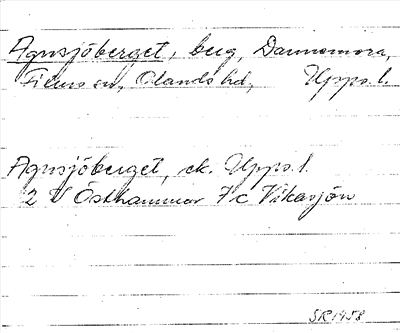 Agnsjöberget, berg, Dannemora,
Films sn, Olands hd, Upps. l.
Agnsjöberget, ek. Upps. l.
2 V Östhammar 7c Vikasjön
SR 1958